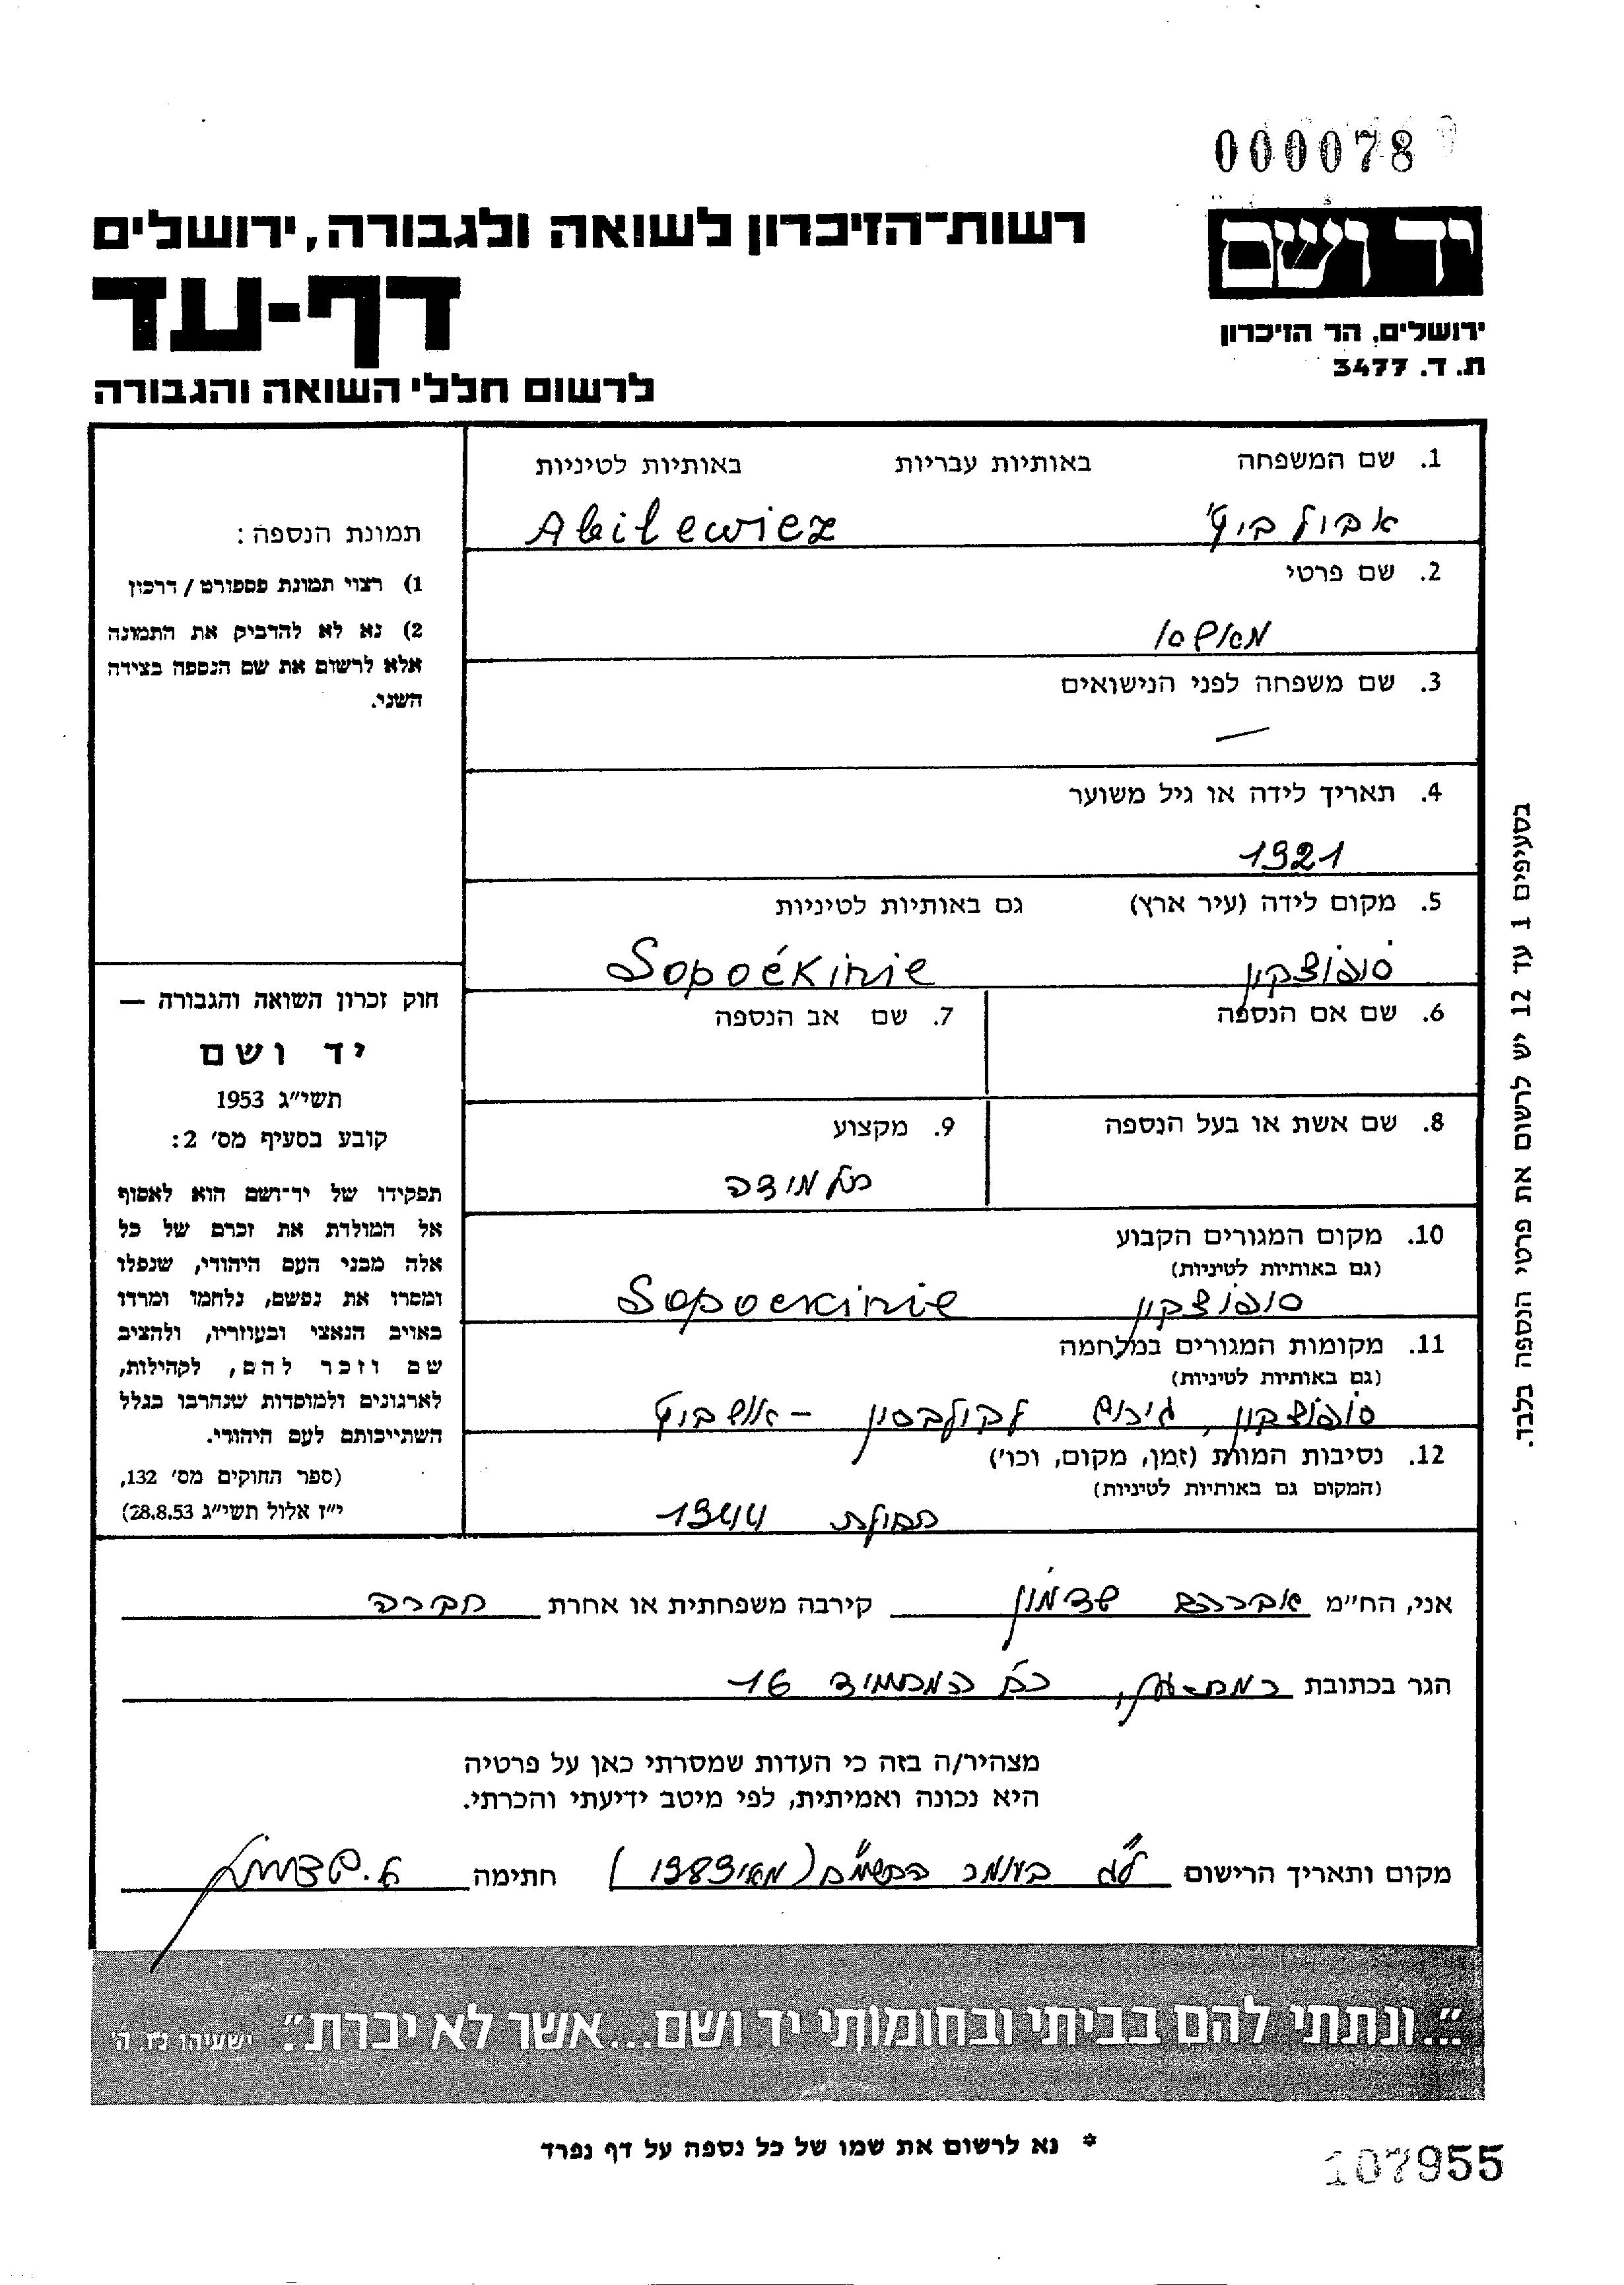 000078
יד ושם
ירושלים, הר הזיכרון
ת. ד. 3477
רשות-הזיכרון לשואה ולגבורה, ירושלים
דף-עד
לרשום חללי השואה והגבורה
1. שם המשפחה באותיות עבריות באותיות לטיניות
אבילביץ' Abilewicz
2. שם פרטי
מאשא
3. שם משפחה לפני הנישואים
—
4. תאריך לידה או גיל משוער
1921
5. מקום לידה (עיר ארץ) גם באותיות לטיניות
סופוצקין Sopoćkinie
6. שם אם הנספה 7. שם אב הנספה
8. שם אשת או בעל הנספה 9. מקצוע
תלמידה
10. מקום המגורים הקבוע
(גם באותיות לטיניות)
סופוצקין Sopockinie
11. מקומות המגורים במלחמה
(גם באותיות לטיניות)
סופוצקין, גירוש לקולבסין – אושביץ
12. נסיבות המוות (זמן, מקום, וכו')
(המקום גם באותיות לטיניות)
תחילת 1944
תמונת הנספה:
1) רצוי תמונת פספורט / דרכון
2) נא לא להדביק את התמונה
אלא לרשום את שם הנספה בצידה
השני.
חוק זכרון השואה והגבורה —
יד ושם
תשי"ג 1953
קובע בסעיף מס' 2:
תפקידו של יד־ושם הוא לאסוף
אל המולדת את זכרם של כל
אלה מבני העם היהודי, שנפלו
ומסרו את נפשם, נלחמו ומרדו
באויב הנאצי ובעוזריו, ולהציב
שם וזכר להם, לקהילות,
לארגונים ולמוסדות שנחרבו בגלל
השתייכותם לעם היהודי.
(ספר החוקים מס' 132,
י"ז אלול תשי"ג 28.8.53)
בסעיפים 1 עד 12 יש לרשום את פרטי הנספה בלבד.
אני, הח"מ אברהם שדמון קירבה משפחתית או אחרת חברה
הגר בכתובת רמת-גן, רח' 16
מצהיר/ה בזה כי העדות שמסרתי כאן על פרטיה
היא נכונה ואמיתית, לפי מיטב ידיעתי והכרתי.
מקום ותאריך הרישום ל"ג בעומר (מאי 1983) חתימה א. שדמון
"...ונתתי להם בביתי ובחומותי יד ושם...אשר לא יכרת". ישעיהו נו, ה'
* נא לרשום את שמו של כל נספה על דף נפרד
107955